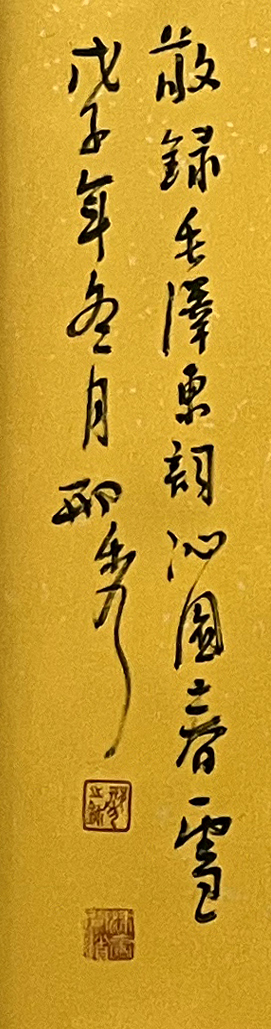 敬録毛澤東詞沁園春雪
戊子年冬月邢秀